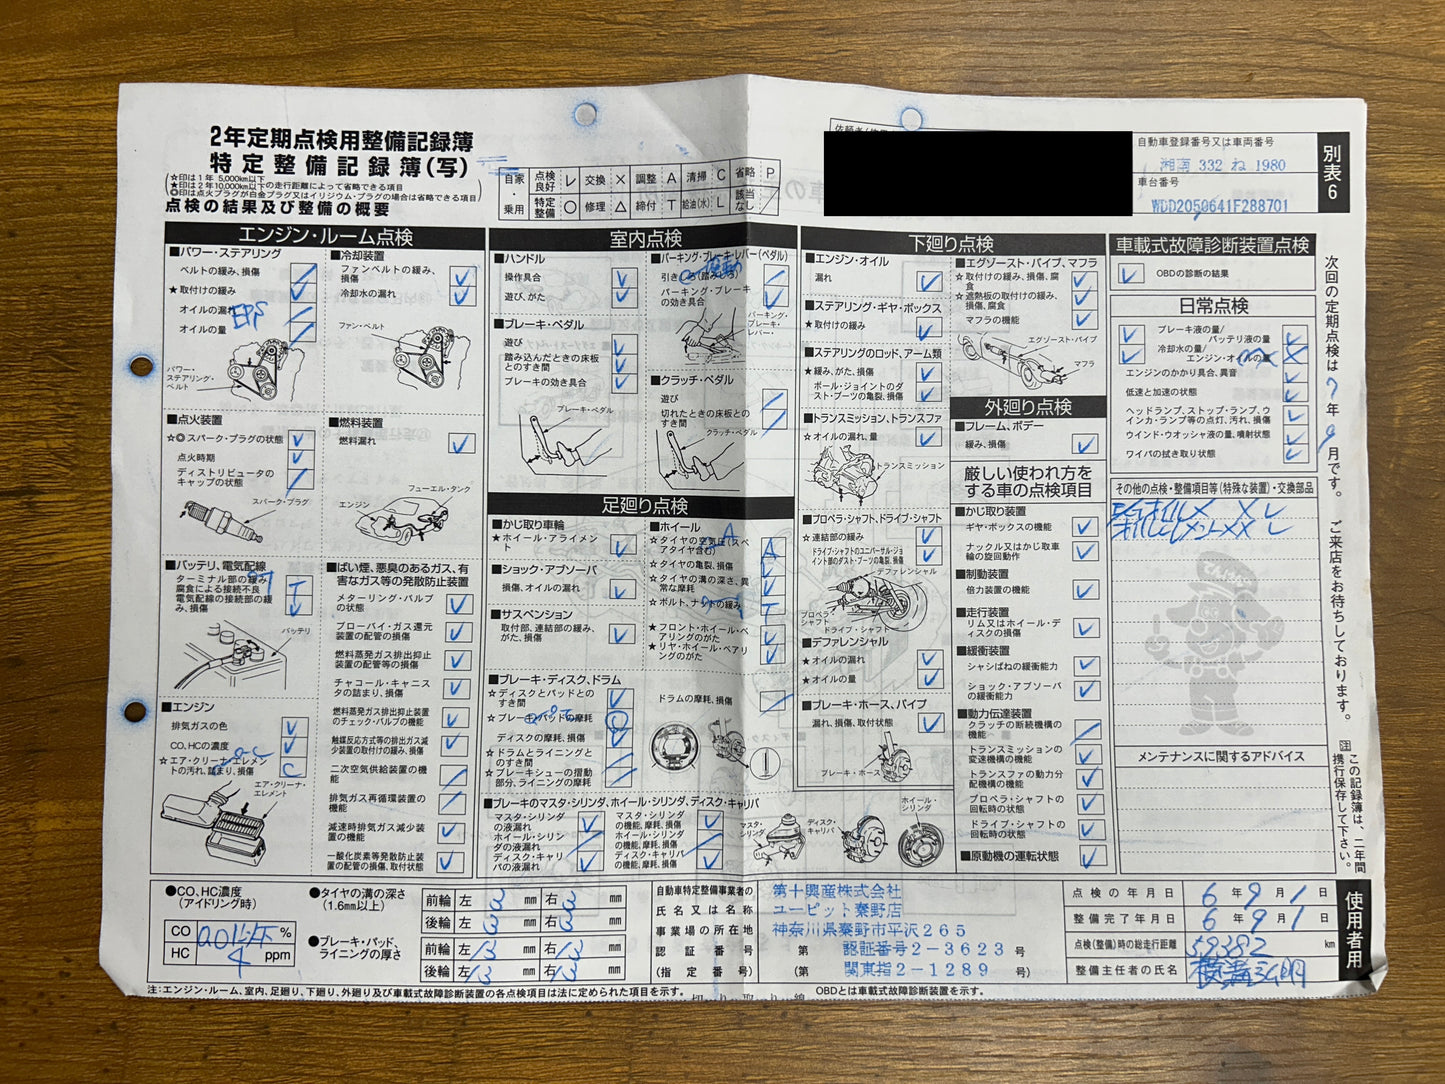 2年定期点検用整備記録簿
特定整備記録簿(写)
☆印は1年 5,000km以下
★印は2年10,000km以下の走行距離によって省略できる項目
◎印は点火プラグが白金プラグ又はイリジウム・プラグの場合は省略できる項目
点検の結果及び整備の概要
自家・乗用
点検良好 レ 交換 × 調整 A 清掃 C 省略 P
特定整備 ○ 修理 △ 締付 T 給油(水) L 該当なし /
自動車登録番号又は車両番号
湘南 332 ね 1980
車台番号
WDD2050641F288701
別表6
エンジン・ルーム点検
■パワー・ステアリング
ベルトの緩み、損傷
★ 取付けの緩み
オイルの漏れ
EPS
オイルの量
パワー・ステアリング・ベルト
■冷却装置
ファンベルトの緩み、損傷
冷却水の漏れ
ファン・ベルト
■点火装置
☆◎ スパーク・プラグの状態
点火時期
ディストリビュータのキャップの状態
スパーク・プラグ
■燃料装置
燃料漏れ
フューエル・タンク
エンジン
■バッテリ、電気配線
ターミナル部の緩み、腐食による接続不良 T
電気配線の接続部の緩み、損傷
バッテリ
■エンジン
排気ガスの色
CO、HCの濃度
☆ エア・クリーナ・エレメントの汚れ、詰まり、損傷 C
エア・クリーナ・エレメント
■ばい煙、悪臭のあるガス、有害なガス等の発散防止装置
メターリング・バルブの状態
ブローバイ・ガス還元装置の配管の損傷
燃料蒸発ガス排出抑止装置の配管等の損傷
チャコール・キャニスタの詰まり、損傷
燃料蒸発ガス排出抑止装置のチェック・バルブの機能
触媒反応方式等の排出ガス減少装置の取付けの緩み、損傷
二次空気供給装置の機能
排気ガス再循環装置の機能
減速時排気ガス減少装置の機能
一酸化炭素等発散防止装置の配管の損傷、取付状態
室内点検
■ハンドル
操作具合
遊び、がた
■ブレーキ・ペダル
遊び
踏み込んだときの床板とのすき間
ブレーキの効き具合
ブレーキ・ペダル
■パーキング・ブレーキ・レバー(ペダル)
引きしろ(踏みしろ)
パーキング・ブレーキの効き具合
パーキング・ブレーキ・レバー
■クラッチ・ペダル
遊び
切れたときの床板とのすき間
クラッチ・ペダル
足廻り点検
■かじ取り車輪
★ ホイール・アライメント
■ショック・アブソーバ
損傷、オイルの漏れ
■サスペンション
取付部、連結部の緩み、がた、損傷
■ホイール
☆ タイヤの空気圧(スペアタイヤ含む) A
☆ タイヤの亀裂、損傷
☆ タイヤの溝の深さ、異常な摩耗
☆ ボルト、ナットの緩み T
★ フロント・ホイール・ベアリングのがた
★ リヤ・ホイール・ベアリングのがた
■ブレーキ・ディスク、ドラム
☆ ディスクとパッドとのすき間
☆ ブレーキ・パッドの摩耗
ディスクの摩耗、損傷
☆ ドラムとライニングとのすき間
☆ ブレーキシューの摺動部分、ライニングの摩耗
ドラムの摩耗、損傷
■ブレーキのマスタ・シリンダ、ホイール・シリンダ、ディスク・キャリパ
マスタ・シリンダの液漏れ
ホイール・シリンダの液漏れ
ディスク・キャリパの液漏れ
マスタ・シリンダの機能、摩耗、損傷
ホイール・シリンダの機能、摩耗、損傷
ディスク・キャリパの機能、摩耗、損傷
マスタ・シリンダ
ディスク・キャリパ
ホイール・シリンダ
下廻り点検
■エンジン・オイル
漏れ
■ステアリング・ギヤ・ボックス
★ 取付けの緩み
■ステアリングのロッド、アーム類
★ 緩み、がた、損傷
ボール・ジョイントのダスト・ブーツの亀裂、損傷
■トランスミッション、トランスファ
☆ オイルの漏れ、量
トランスミッション
■プロペラ・シャフト、ドライブ・シャフト
★ 連結部の緩み
ドライブ・シャフトのユニバーサル・ジョイント部のダスト・ブーツの亀裂、損傷
デファレンシャル
プロペラ・シャフト
ドライブ・シャフト
■デファレンシャル
★ オイルの漏れ
★ オイルの量
■ブレーキ・ホース、パイプ
漏れ、損傷、取付状態
ブレーキ・ホース
■エグゾースト・パイプ、マフラ
☆ 取付けの緩み、損傷、腐食
☆ 遮熱板の取付けの緩み、損傷、腐食
マフラの機能
エグゾースト・パイプ
マフラ
外廻り点検
■フレーム、ボデー
緩み、損傷
厳しい使われ方をする車の点検項目
■かじ取り装置
ギヤ・ボックスの機能
ナックル又はかじ取車輪の旋回動作
■制動装置
倍力装置の機能
■走行装置
リム又はホイール・ディスクの損傷
■緩衝装置
シャシばねの緩衝能力
ショック・アブソーバの緩衝能力
■動力伝達装置
クラッチの断続機構の機能
トランスミッションの変速機構の機能
トランスファの動力分配機構の機能
プロペラ・シャフトの回転時の状態
ドライブ・シャフトの回転時の状態
■原動機の運転状態
車載式故障診断装置点検
OBDの診断の結果
日常点検
ブレーキ液の量/バッテリ液の量
冷却水の量/エンジン・オイルの量
エンジンのかかり具合、異音
低速と加速の状態
ヘッドランプ、ストップ・ランプ、ウインカ・ランプ等の点灯、汚れ、損傷
ウインド・ウオッシャ液の量、噴射状態
ワイパの拭き取り状態
その他の点検・整備項目等(特殊な装置)・交換部品
メンテナンスに関するアドバイス
次回の定期点検は7年9月です。
ご来店をお待ちしております。
注 この記録簿は、二年間携行保存して下さい。
●CO、HC濃度(アイドリング時)
CO 0.01以下 %
HC 4 ppm
●タイヤの溝の深さ(1.6mm以上)
前輪 左 mm 右 mm
後輪 左 mm 右 mm
●ブレーキ・パッド、ライニングの厚さ
前輪 左 mm 右 mm
後輪 左 mm 右 mm
自動車特定整備事業者の氏名又は名称
事業場の所在地
認証番号
(指定番号)
第十興産株式会社
ユーピット秦野店
神奈川県秦野市平沢265
(第 認証番号2-3623 号
(第 関東指2-1289 号)
点検の年月日 6年9月1日
整備完了年月日 6年9月1日
点検(整備)時の総走行距離 59382 km
整備主任者の氏名
使用者用
注:エンジン・ルーム、室内、足廻り、下廻り、外廻り及び車載式故障診断装置の各点検項目は法に定められた項目を示す。
OBDとは車載式故障診断装置を示す。